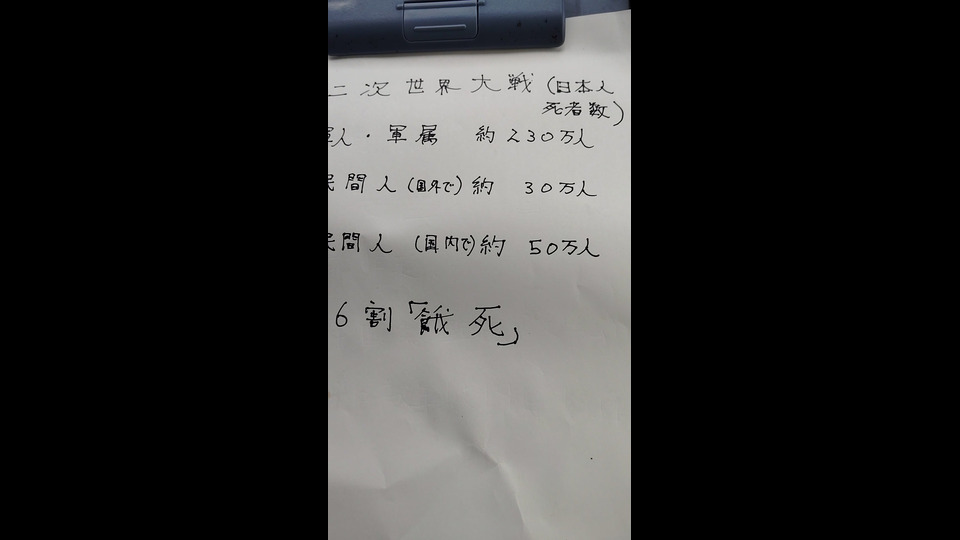 二次世界大戦(日本人
死者数)
軍人・軍属 約230万人
民間人(国外で)約 30万人
民間人(国内で)約 50万人
6割「餓死」